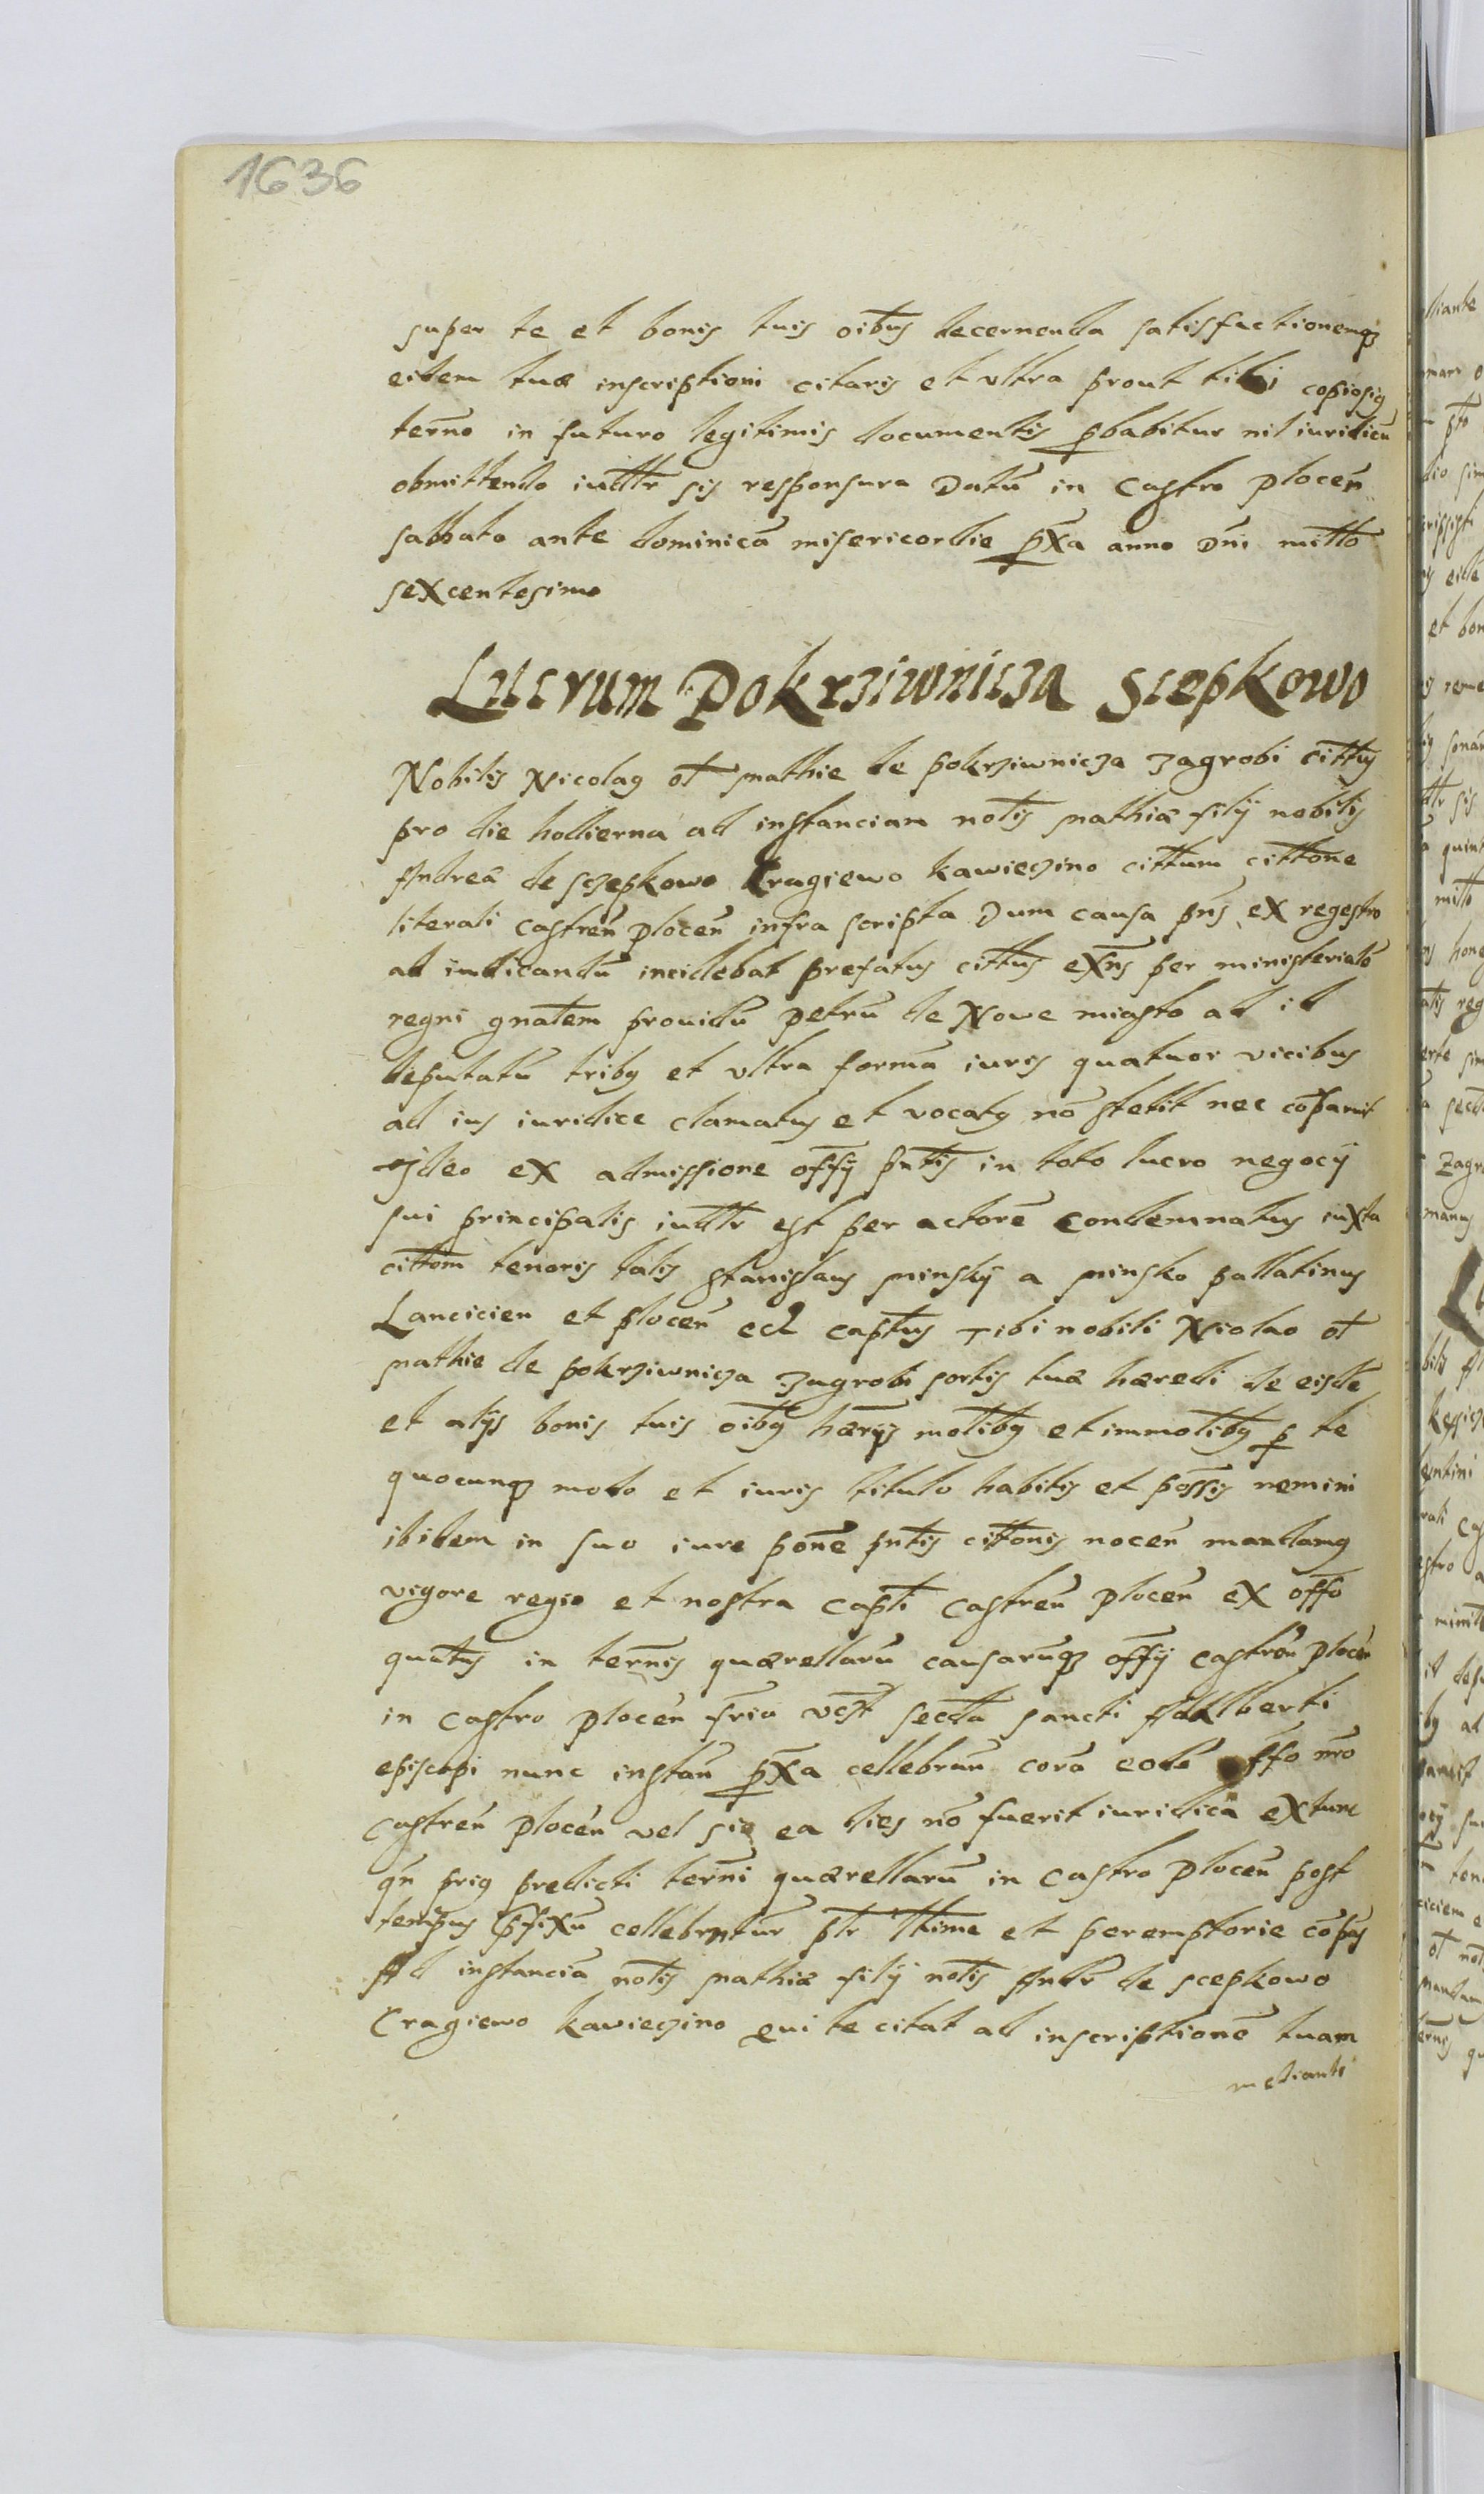 1636
super te et bonis tuis oibus decernenda satisfactionemq3
eidem tuæ inscriptioni citaris et vltra prout tibi copiosiq
termo in futuro legitimis documentis pbabitur nil iuridicū
obmittendo iudlr sis responsura Datū in Castro plocen
sabbato ante dominicā misericordie pxa anno Dni millo
sexcentesimo
Lucrum Pokrziwnicza Scepkowo
Nobilis Nicolaq ol mathie de pokrziwnicza zagrobi cittus
pro die hodierna ad instanciam nolis mathiæ filÿ nobilis
Andreæ de sczepkowo Cragiewo kawieczino cittum cittone
literali castren plocen infra scripta Dum causa pns ex regestro
ad iudicandū incidebat prefatus cittus exns per ministerialē
regni gnalem prouidū petrū de Nowe miasto ad id
deputatū tribq et vltra formā iuris quatuor vicibus
ad ius iuridice clamatus et vocatq nō stetit nec cōparuit
Ideo ex admissione offÿ pntis in toto lucro negocÿ
sui principalis iudlr est per actorē condemnatus iuxta
cittom tenoris talis stanislaus minskÿ a minsko pallatinus
Lancicien et plocen ecl captus Tibi nobili Niolao ol
mathie de pokrziwnicza zagrobi sortis tuæ hæredi de eisdē
et alÿs bonis tuis oibq hærÿs molibq et immolibq p te
quocunq3 modo et iuris titulo habitis et possis nemini
ibidem in suo iure pone pntis cittonis nocen mandamq
vigore regio et nostra capli castren plocen ex offo
quatus in termis quærellarū causarūq3 offÿ castren plocen
in castro plocen fria secda sancti Adalberti
episcopi nunc instan pxa cellebran corā eodē offo nro
castren plocen vel si ea dies nō fuerit iuridica extunc
qn priq predicti termi quærellarū in castro plocen post
tempus pfixū cellebrntur plr ltime et peremptorie cōpās
Ad instanciā nolis mathiæ filÿ nolis Andr de scepkowo
Cragiewo kavieczino qui te citat ad inscriptionē tuam
medianti